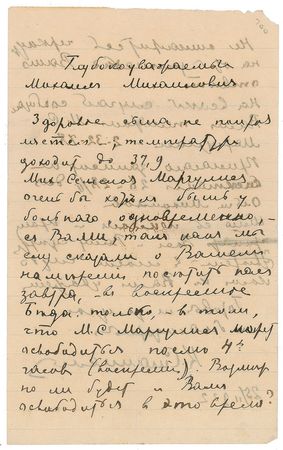 Глубокоуважаемый
Михаил Михайлович
Здоровье сына не поправ
ляется, температура
доходит до 37,9
Мих. Семен. Маргулиес
очень бы хотел быть у
больного, одновременно
с Вами, так как мы
ему сказали о Вашем
намерении посетить нас
завтра, в воскресенье
Беда только в том,
что М.С. Маргулиес может
освободиться после 4х
часов (воскресенье). Возмож
но ли будет и Вам
освободиться в это время?